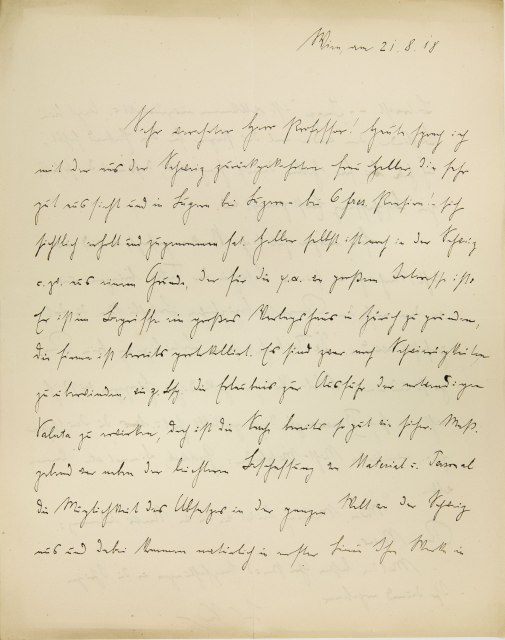 Wien, am 21. 8. 18
Sehr verehrter Herr Professor! Heute sprach ich
mit der aus der Schweiz zurückgekehrten Frau Heller, die sehr
gut aussieht und in Luzern bei Luzern - bei 6 frcs. Pension - sich
sichtlich erholt und zugenommen hat. Heller selbst ist noch in der Schweiz
u. zw. aus einem Grunde, der für die ψα. von großem Interesse ist.
Er ist im Begriffe ein großes Verlagshaus in Zürich zu gründen,
die Firma ist bereits protokolliert. Es sind zwar noch Schwierigkeiten
zu überwinden, wie z. Bsp. die Erlaubnis zur Ausfuhr der notwendigen
Valuta zu erwirken, doch ist die Sache bereits so gut wie sicher. Maß-
gebend war neben der leichteren Beschaffung von Material u. Personal
die Möglichkeit des Absatzes in der ganzen Welt von der Schweiz
aus und dabei kommen natürlich in erster Linie Ihre Werke in